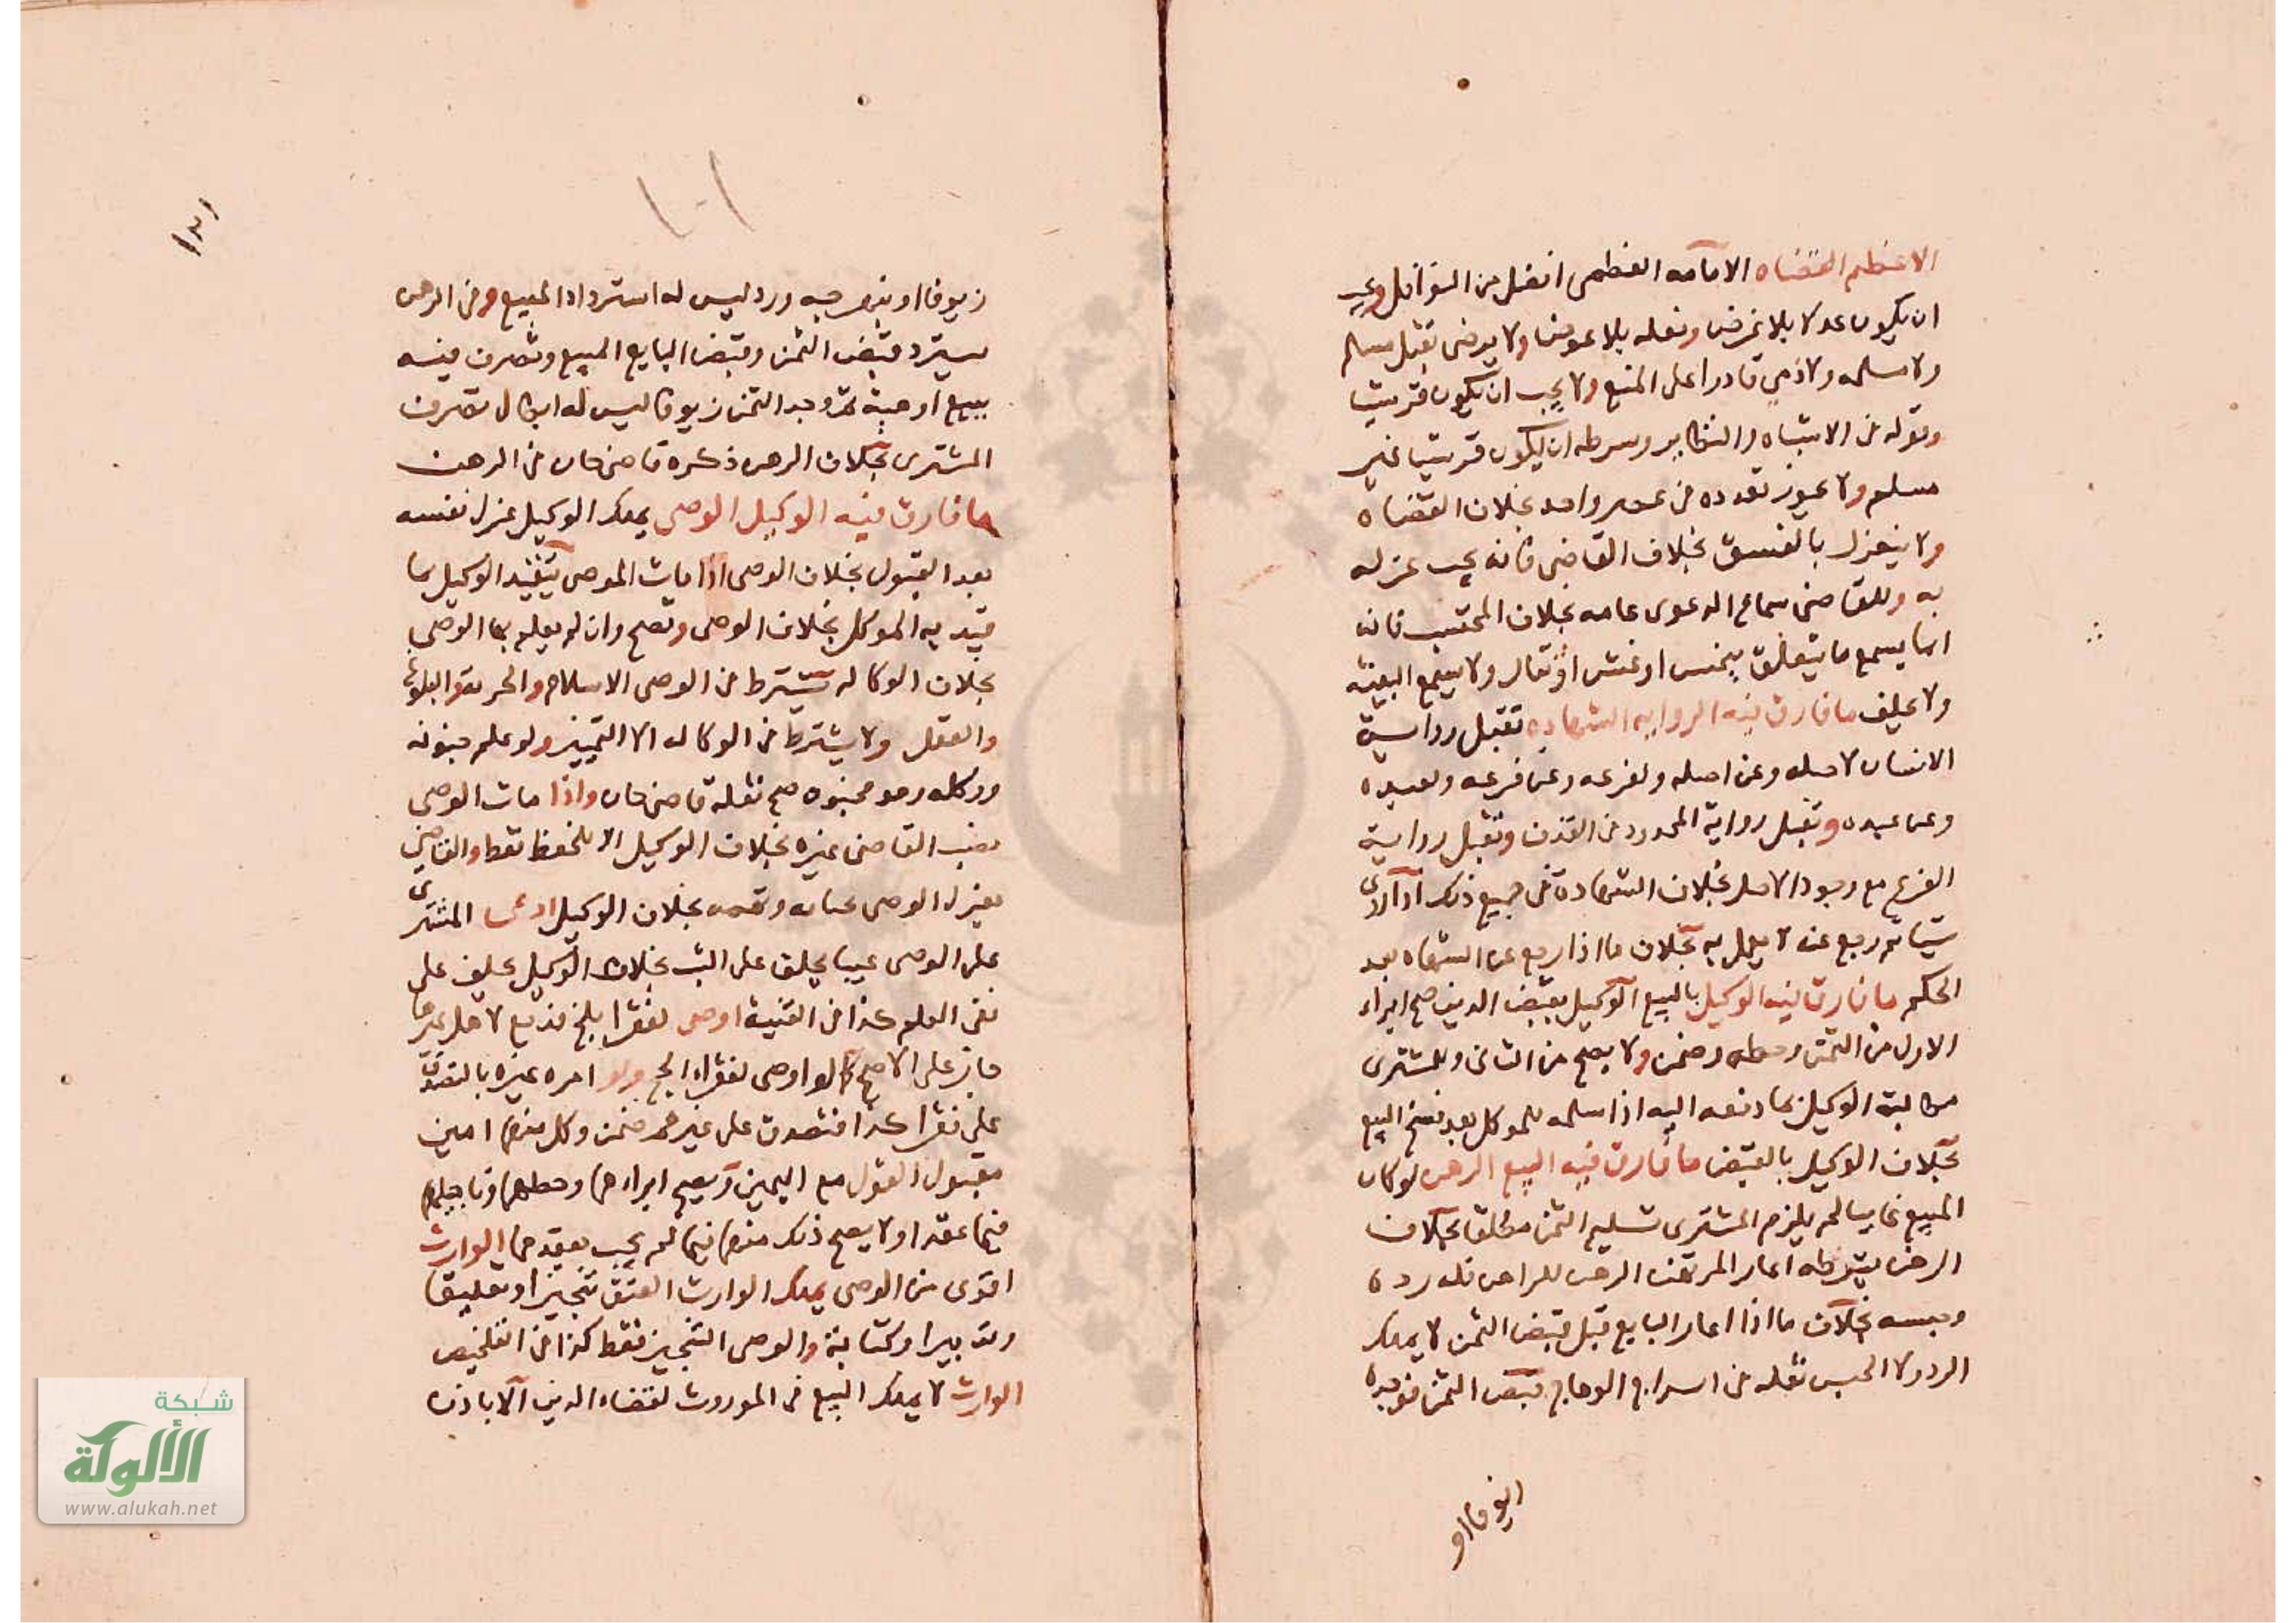 الاعظم القضاه الامامه العظمى افضل من النوافل ويجب
ان يكون عدلا بلا غرض وفعله بلا عوض ولا يرضى بقبل مسلم
ولا مسلمه ولا ذمي قادرا على المنع ولا يجب ان يكون قريشيا
وقوله في الاشباه والنظاير وشرطه ان يكون قريشيا غير
مسلم ولا يجوز تعدده في عصر واحد بخلاف القضاه
ولا ينعزل بالفسق بخلاف القاضى فانه يجب عزله
به وللقاضى سماع الدعوى عامه بخلاف المحتسب فانه
انما يسمع ما يتعلق ببخس او غش او ولا يسمع البينه
ولا يحلف ما فارق فيه الروايه الشهاده تقبل رواية
الانسان لاصله وعن اصله ولفرعه وعن فرعه ولعبده
وعن عبده وتقبل رواية المحدود في القذف وتقبل رواية
الفرع مع وجود الاصل بخلاف الشهادة في جميع ذلك اذا روى
شيا ثم رجع عنه لا يعمل به بخلاف ما اذا رجع عن الشهاه بعد
الحكم ما فارق فيه الوكيل بالبيع الوكيل بقبض الدين صح ابراء
الاول من الثمن وحطه وضمن ولا يصح من الثانى وللمشترى
مطالبة الوكيل بما دفعه اليه اذا سلمه للموكل بعد فسخ البيع
بخلاف الوكيل بالقبض ما فارق فيه البيع الرهن لو كان
المبيع غايبا لم يلزم المشترى تسليم الثمن مطلقا بخلاف
الرهن بشرطه اعار المرتهن الرهن للراهن فله رده
وحبسه بخلاف ما اذا اعار البايع قبل قبض الثمن لا يملك
الرد ولا الحبس نقله في السراج الوهاج قبض الثمن فوجده
زيوفا او
زيوفا او بنهرجه ورد ليس له استرداد المبيع وفى الرهن
يسترد قبض الثمن وقبض البايع المبيع وتصرف فيه
ببيع او هبة ثم وجد الثمن زيوفا ليس له ابطال تصرف
المشترى بخلاف الرهن ذكره قاضى خان فى الرهن
ما فارق فيه الوكيل الوصى يملك الوكيل عزل نفسه
بعد القبول بخلاف الوصى اذا مات الموصى يتقيد الوكيل بما
قيد به الموكل بخلاف الوصى وتصح وان لم يعلم بها الوصى
بخلاف الوكاله يشترط فى الوصى الاسلام والحريه والبلوغ
والعقل ولا يشترط فى الوكاله الا التمييز ولو علم جنونه
ووكله وهو مجنون صح نقله قاضى خان واذا مات الوصى
نصب القاضى غيره بخلاف الوكيل الا للحفظ فقط والقاضى
يعزل الوصى بخلاف الوكيل ادعى المشترى
على الوصى عيبا يحلف على البت بخلاف الوكيل يحلف على
نفى العلم كذا فى القنية اوصى لفقرا بلخ
جاز على الاصح كما لو اوصى لفقراء الحج ولو امره غيره بالتصدق
على فقرا كذا فتصدق على غيرهم ضمن وكل منهما امين
مقبول القول مع اليمين ويصح ابراءهما وحطهما وتاجيلهما
فيما عقدا ولا يصح ذلك منهما فيما لم يجب بعقدهما الوارث
اقوى من الوصى يملك الوارث العتق تنجيزا وتعليقا
وتدبيرا وكتابة والوصى التنجيز فقط كذا فى التلخيص
الوارث لا يملك البيع فى الموروث لقضاء الدين الا باذن
شبكة
الألوكة
www.alukah.net